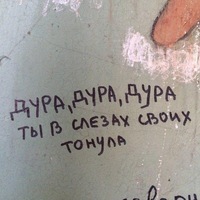 ДУРА, ДУРА, ДУРА
ТЫ В СЛЕЗАХ СВОИХ
ТОНУЛА